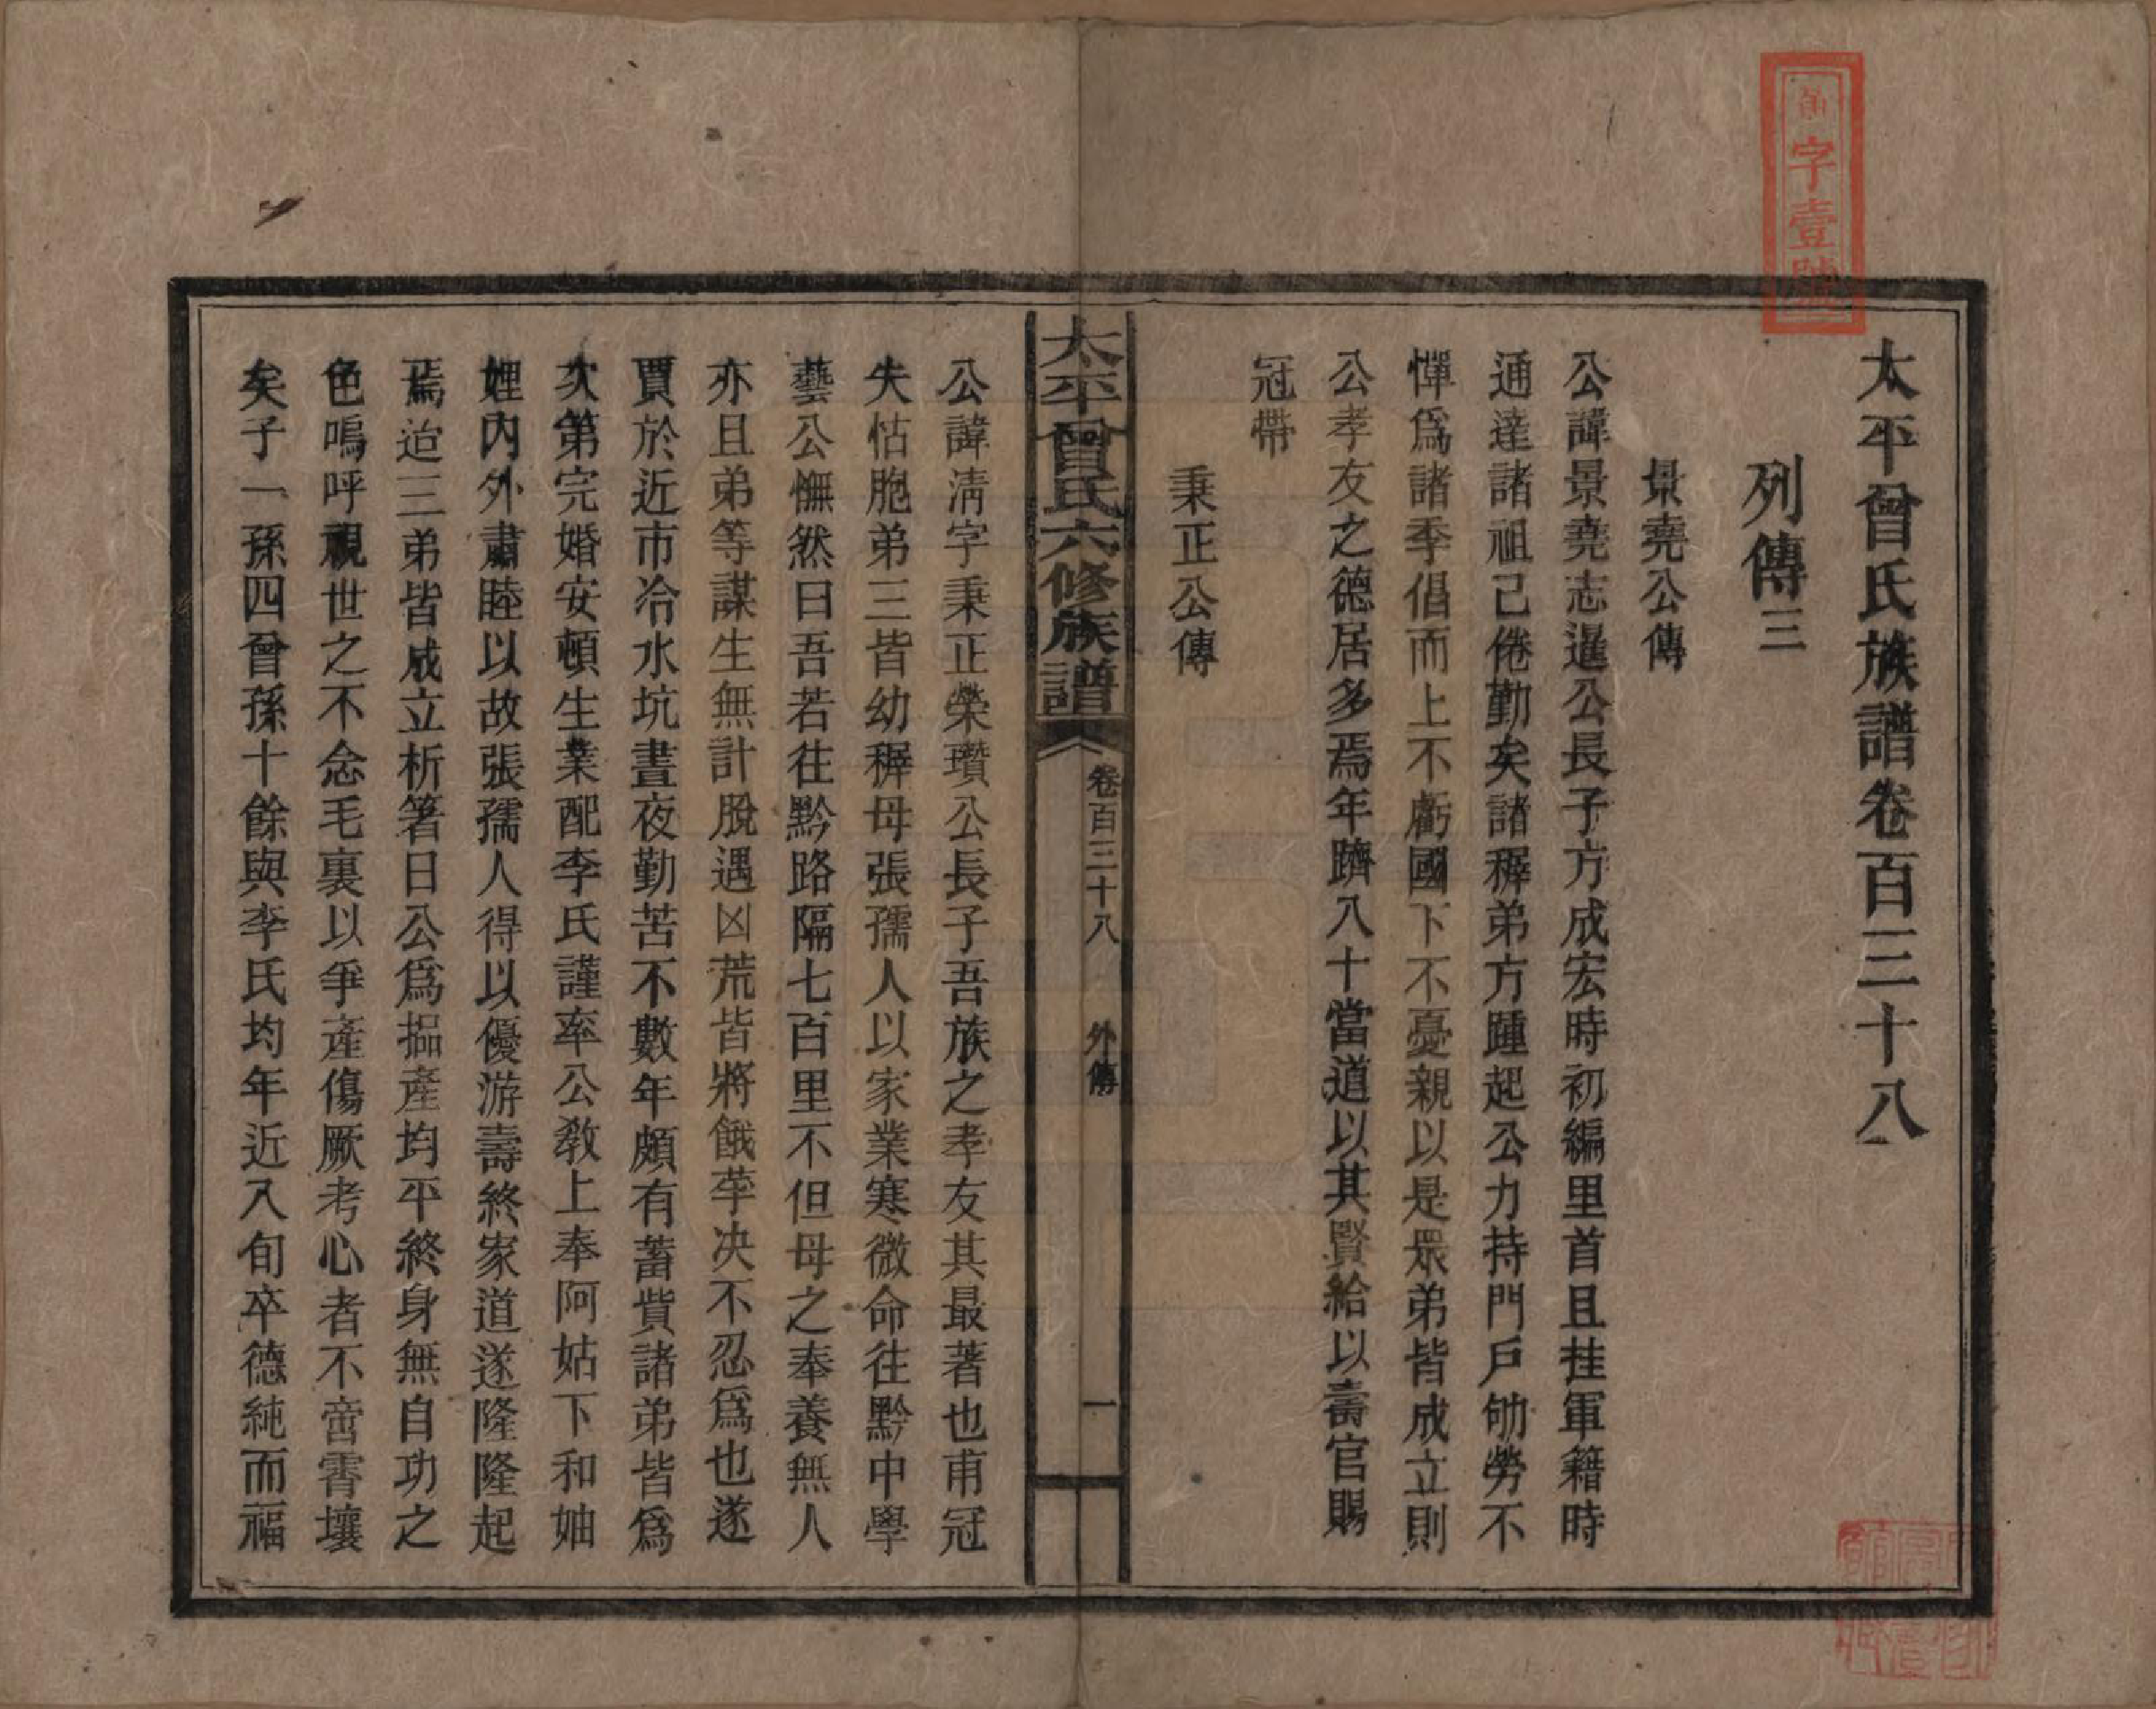 太平曾氏族譜卷百三十八
列傳三
景堯公傳
公諱景堯志暹公長子方成宏時初編里首且挂軍籍時
通達諸祖己倦勤矣諸穉弟方踵起公力持門戶劬勞不
憚爲諸季倡而上不虧國下不憂親以是眾弟皆成立則
公孝友之德居多焉年躋八十當道以其賢給以壽官賜
冠帶
秉正公傳
太平曾氏六修族譜
卷百三十八
外傳
一
公諱淸字秉正榮瓚公長子吾族之孝友其最著也甫冠
失怙胞弟三皆幼穉母張孺人以家業寒微命往黔中學
藝公憮然曰吾若往黔路隔七百里不但母之奉養無人
亦且弟等謀生無計脫遇凶荒皆將餓莩決不忍爲也遂
賈於近市冷水坑晝夜勤苦不數年頗有蓄貲諸弟皆爲
次第完婚安頓生業配李氏謹率公敎上奉阿姑下和妯
娌內外肅睦以故張孺人得以優游壽終家道遂隆隆起
焉迨三弟皆成立析箸日公爲搵產均平終身無自功之
色嗚呼視世之不念毛裏以爭產傷厥考心者不啻霄壤
矣子一孫四曾孫十餘與李氏均年近八旬卒德純而福
字壹號